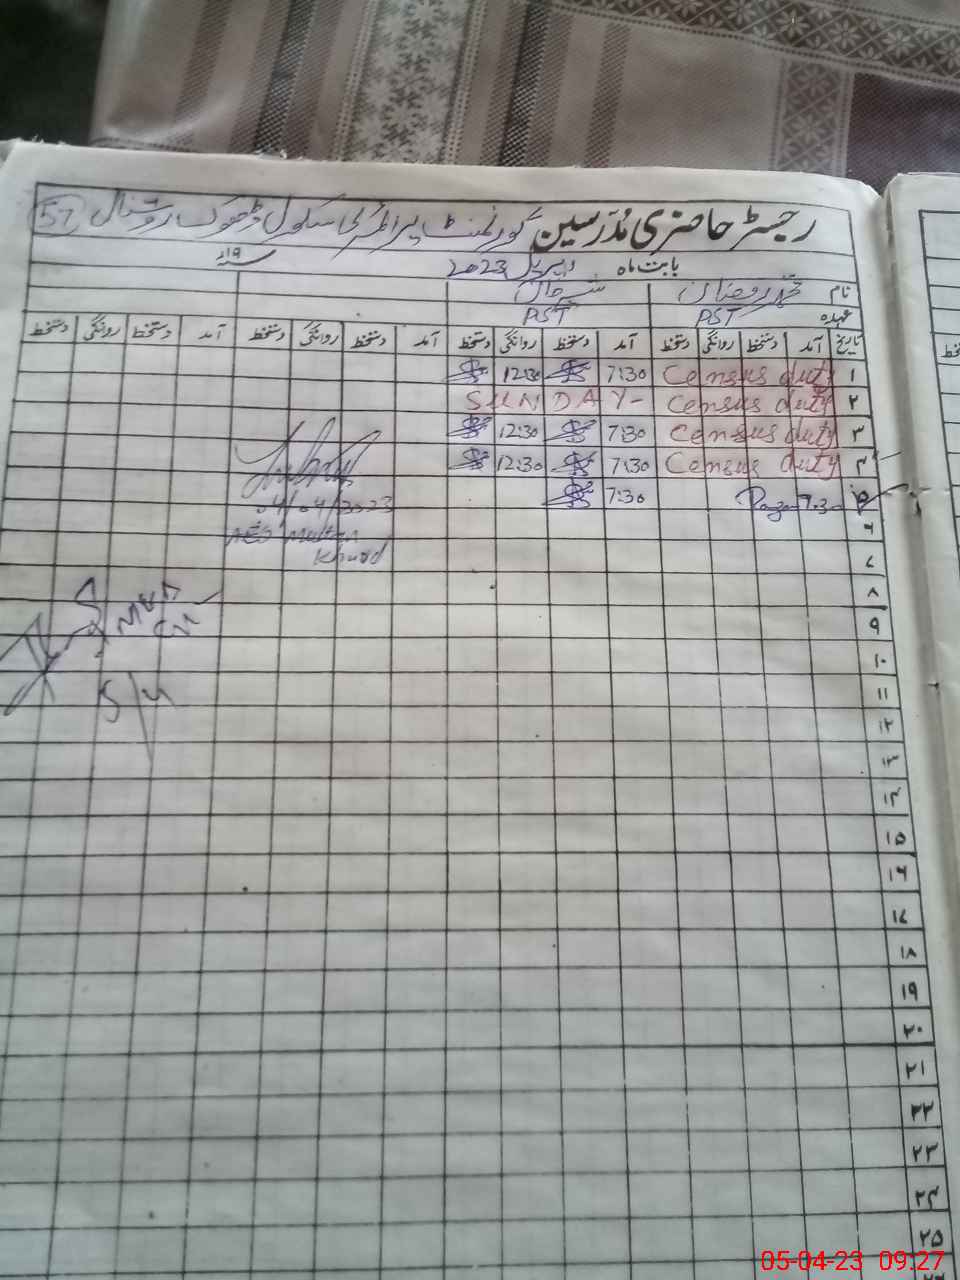 رجسٹر حاضری مُدرسین گورنمنٹ پرائمری سکول ڈھوک روشنال 57
بابت ماہ اپریل 2023 سنہ ۱۹ء
نام محمد رمضان شیر خان
عہدہ PST PST
تاریخ آمد دستخط روانگی دستخط آمد دستخط روانگی دستخط آمد دستخط روانگی دستخط آمد دستخط روانگی دستخط
۱ Census duty 7:30 12:30
۲ Census duty SUNDAY-
۳ Census duty 7:30 12:30
۴ Census duty 7:30 12:30
۵ 7:30 7:30
04/04/2023
۶
AEO Multan
Khurd
۷
۸
MEA
۹
۱۰
۱۱
5/4
۱۲
۱۳
۱۴
۱۵
۱۶
۱۷
۱۸
۱۹
۲۰
۲۱
۲۲
۲۳
۲۴
۲۵
05-04-23 09:27